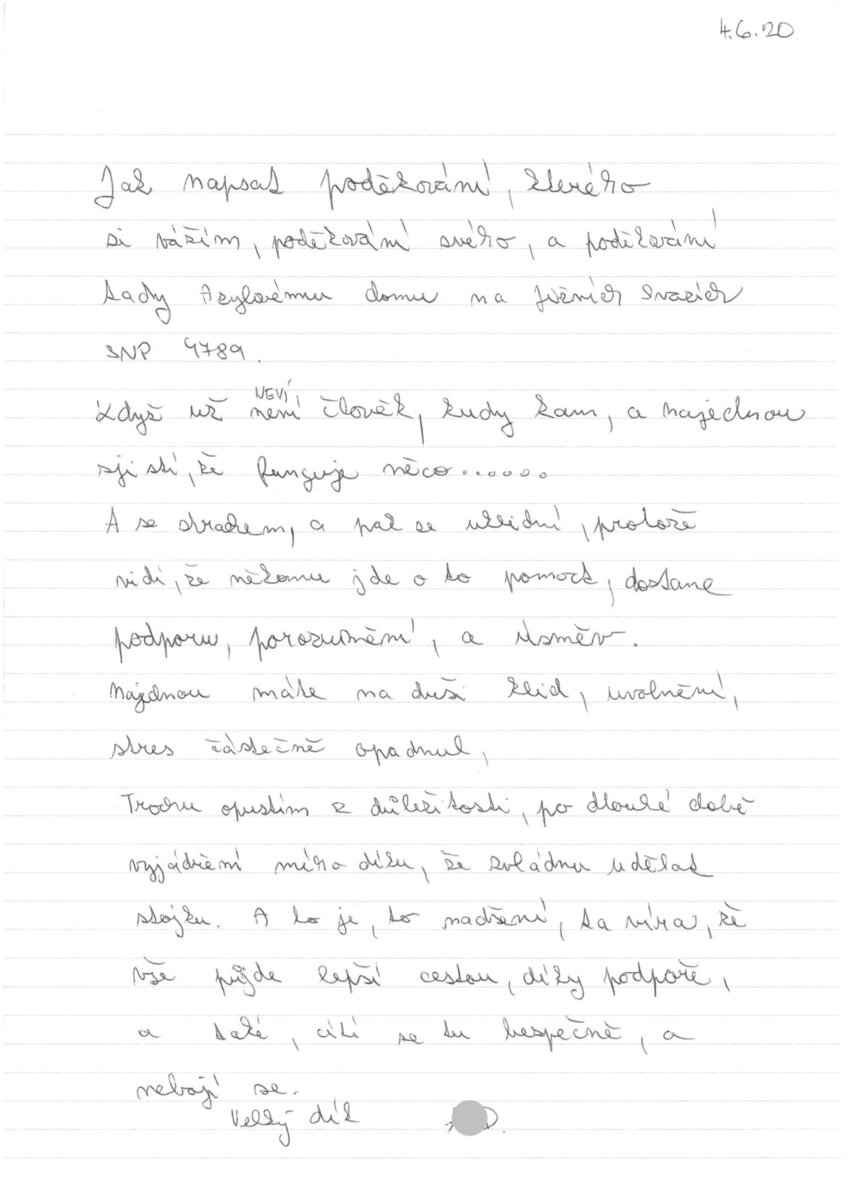 4.6.20
Jak napsat poděkování, kterého
si vážím, poděkování svého, a poděkování
tady Azylovému domu na Jižních Svazích
SNP 4789.
NEVÍ
Když už není člověk, kudy kam, a najednou
zjistí, že funguje něco......
A se strachem, a pak se uklidní, protože
vidí, že někomu jde o to pomoct, dostane
podporu, porozumění, a úsměv.
Najdnou máte na duši klid, uvolnění,
stres částečně opadnul,
Trochu opustím z důležitosti, po dlouhé době
vyjádření mého díku, že zvládnu udělat
stojku. A to je, to nadšení, ta víra, že
vše půjde lepší cestou, díky podpoře,
a také, cítí se tu bespečně, a
nebojí se.
Velký dík D.